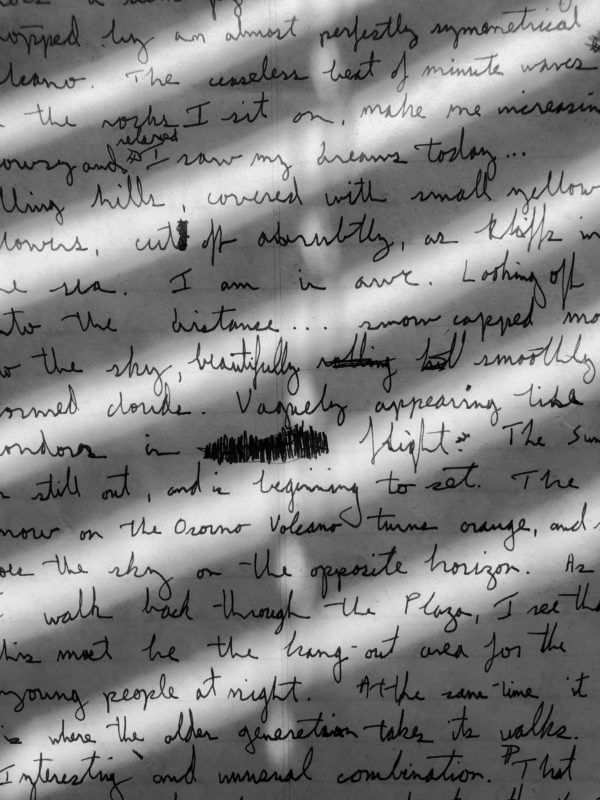 topped by an almost perfectly symmetrical
lcano. The ceaseless beat of minute waves
the rocks I sit on, make me increasin
relaxed
owsy and I saw my dreams today...
lling hills, covered with small yellow
lowers, cut off abrubtly, as kliffs in
he sea. I am in awe. Looking off
nto the distance... snow capped mo
the sky, beautifully rolling smoothly
ormed clouds. Vaguely appearing like
ondors in flight. The Sun
still out, and is beginning to set. The
now on the Osorno Volcano turns orange, and s
oes the sky on the opposite horizon. As
I walk back through the Plaza, I see tha
his must be the hang-out area for the
young people at night. At the same time it
is where the older generation takes its walks.
Interesting and unusual combination. That